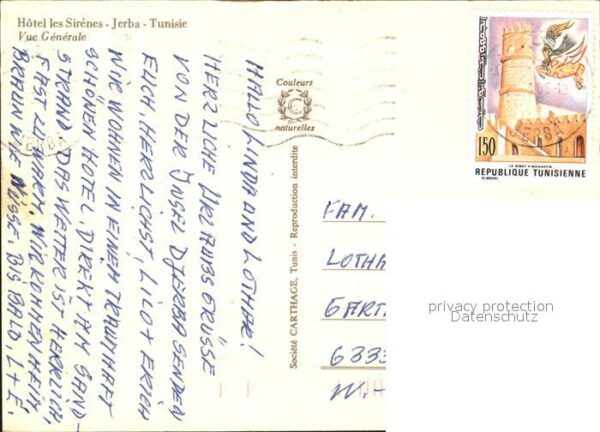 Hôtel les Sirènes - Jerba - Tunisie
Vue Générale
HALLO LINDA UND LOTHAR!
HERZLICHE URLAUBSGRÜSSE
VON DER INSEL DJERBA SENDEN
EUCH, HERZLICHST, LILO + ERICH
WIR WOHNEN IN EINEM TRAUMHAFT
SCHÖNEN HOTEL, DIREKT AM SAND-
STRAND. DAS WETTER IST HERRLICH,
FAST ZU WARM, WIR KOMMEN HEIM
BRAUN WIE NÜSSE, BIS BALD, L + E.
Couleurs
naturelles
Société CARTHAGE, Tunis - Reproduction interdite
150
LE RIBAT MONASTIR
REPUBLIQUE TUNISIENNE
JERBA
FAM.
LOTHA
GART
6333
privacy protection
Datenschutz